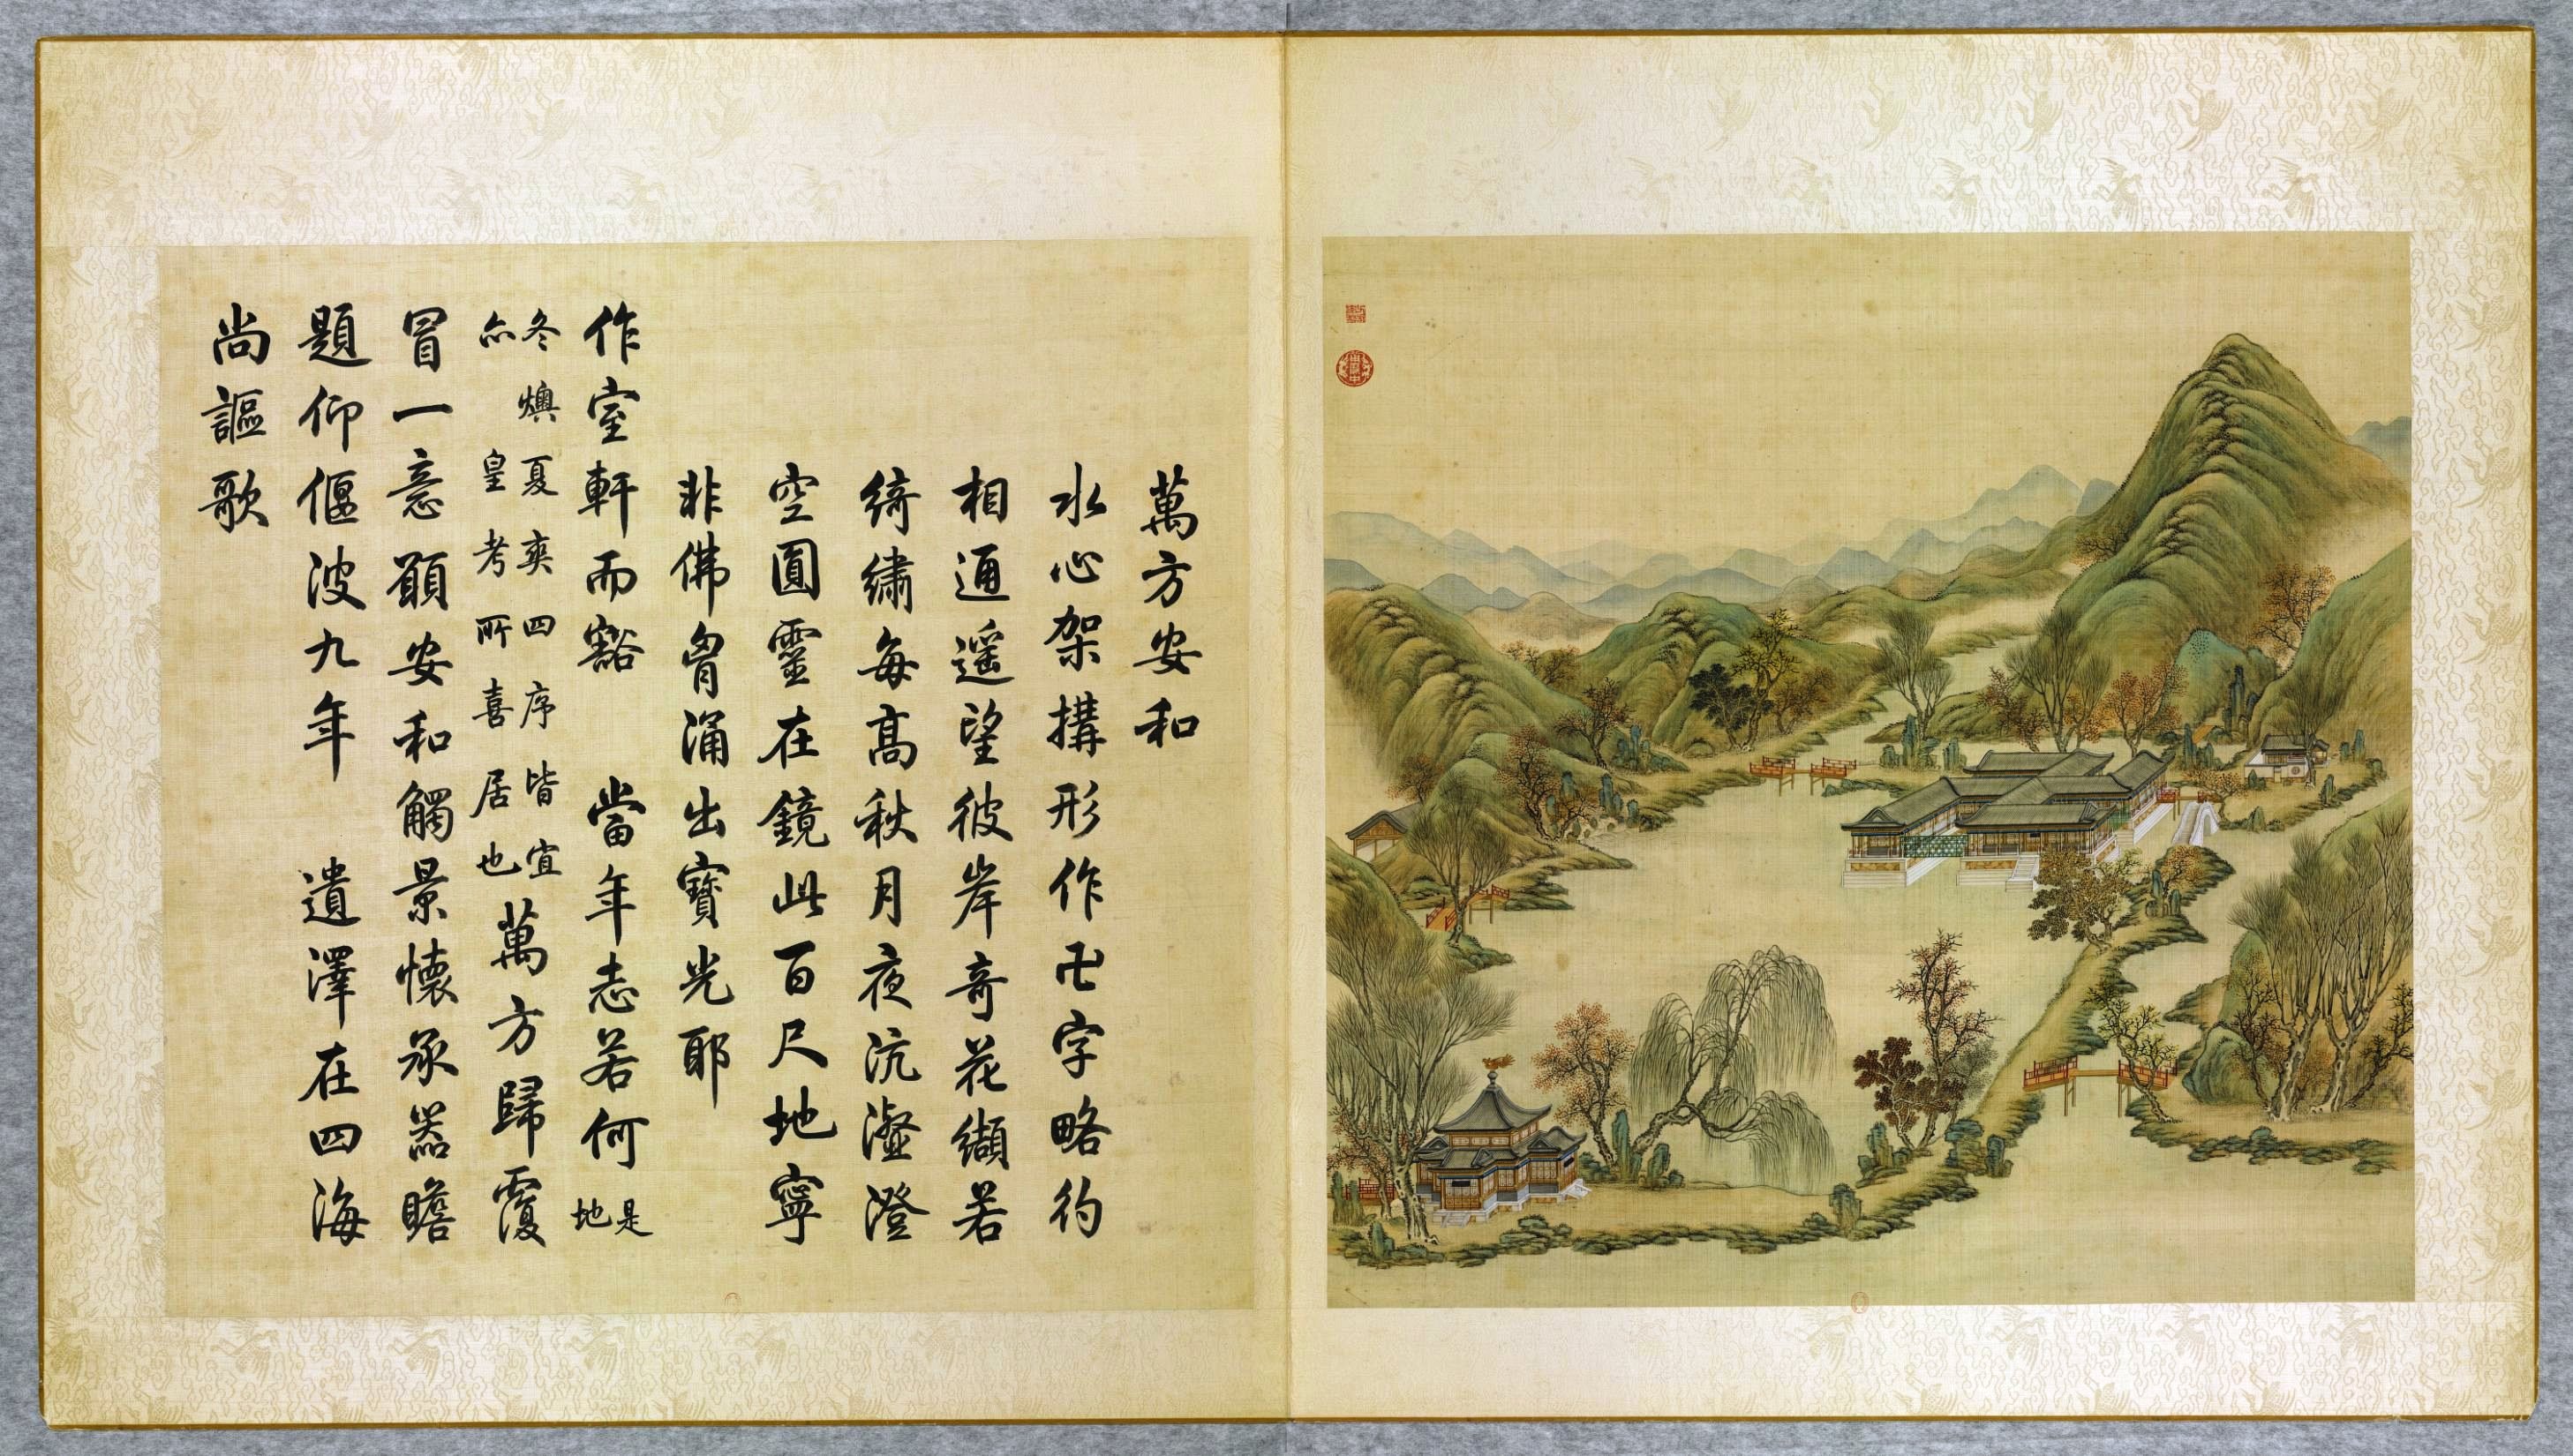 萬方安和
水心架搆形作卍字略彴
相通遥望彼岸奇花纈若
綺繡每髙秋月夜沆瀣澄
空圓靈在鏡此百尺地寧
非佛胷涌出寶光耶
作室軒而豁 當年志若何是地
冬燠夏爽四序皆宜亦皇考所喜居也萬方歸覆
冒一意願安和觸景懷承器瞻
題仰偃波九年 遺澤在四海
尚謳歌